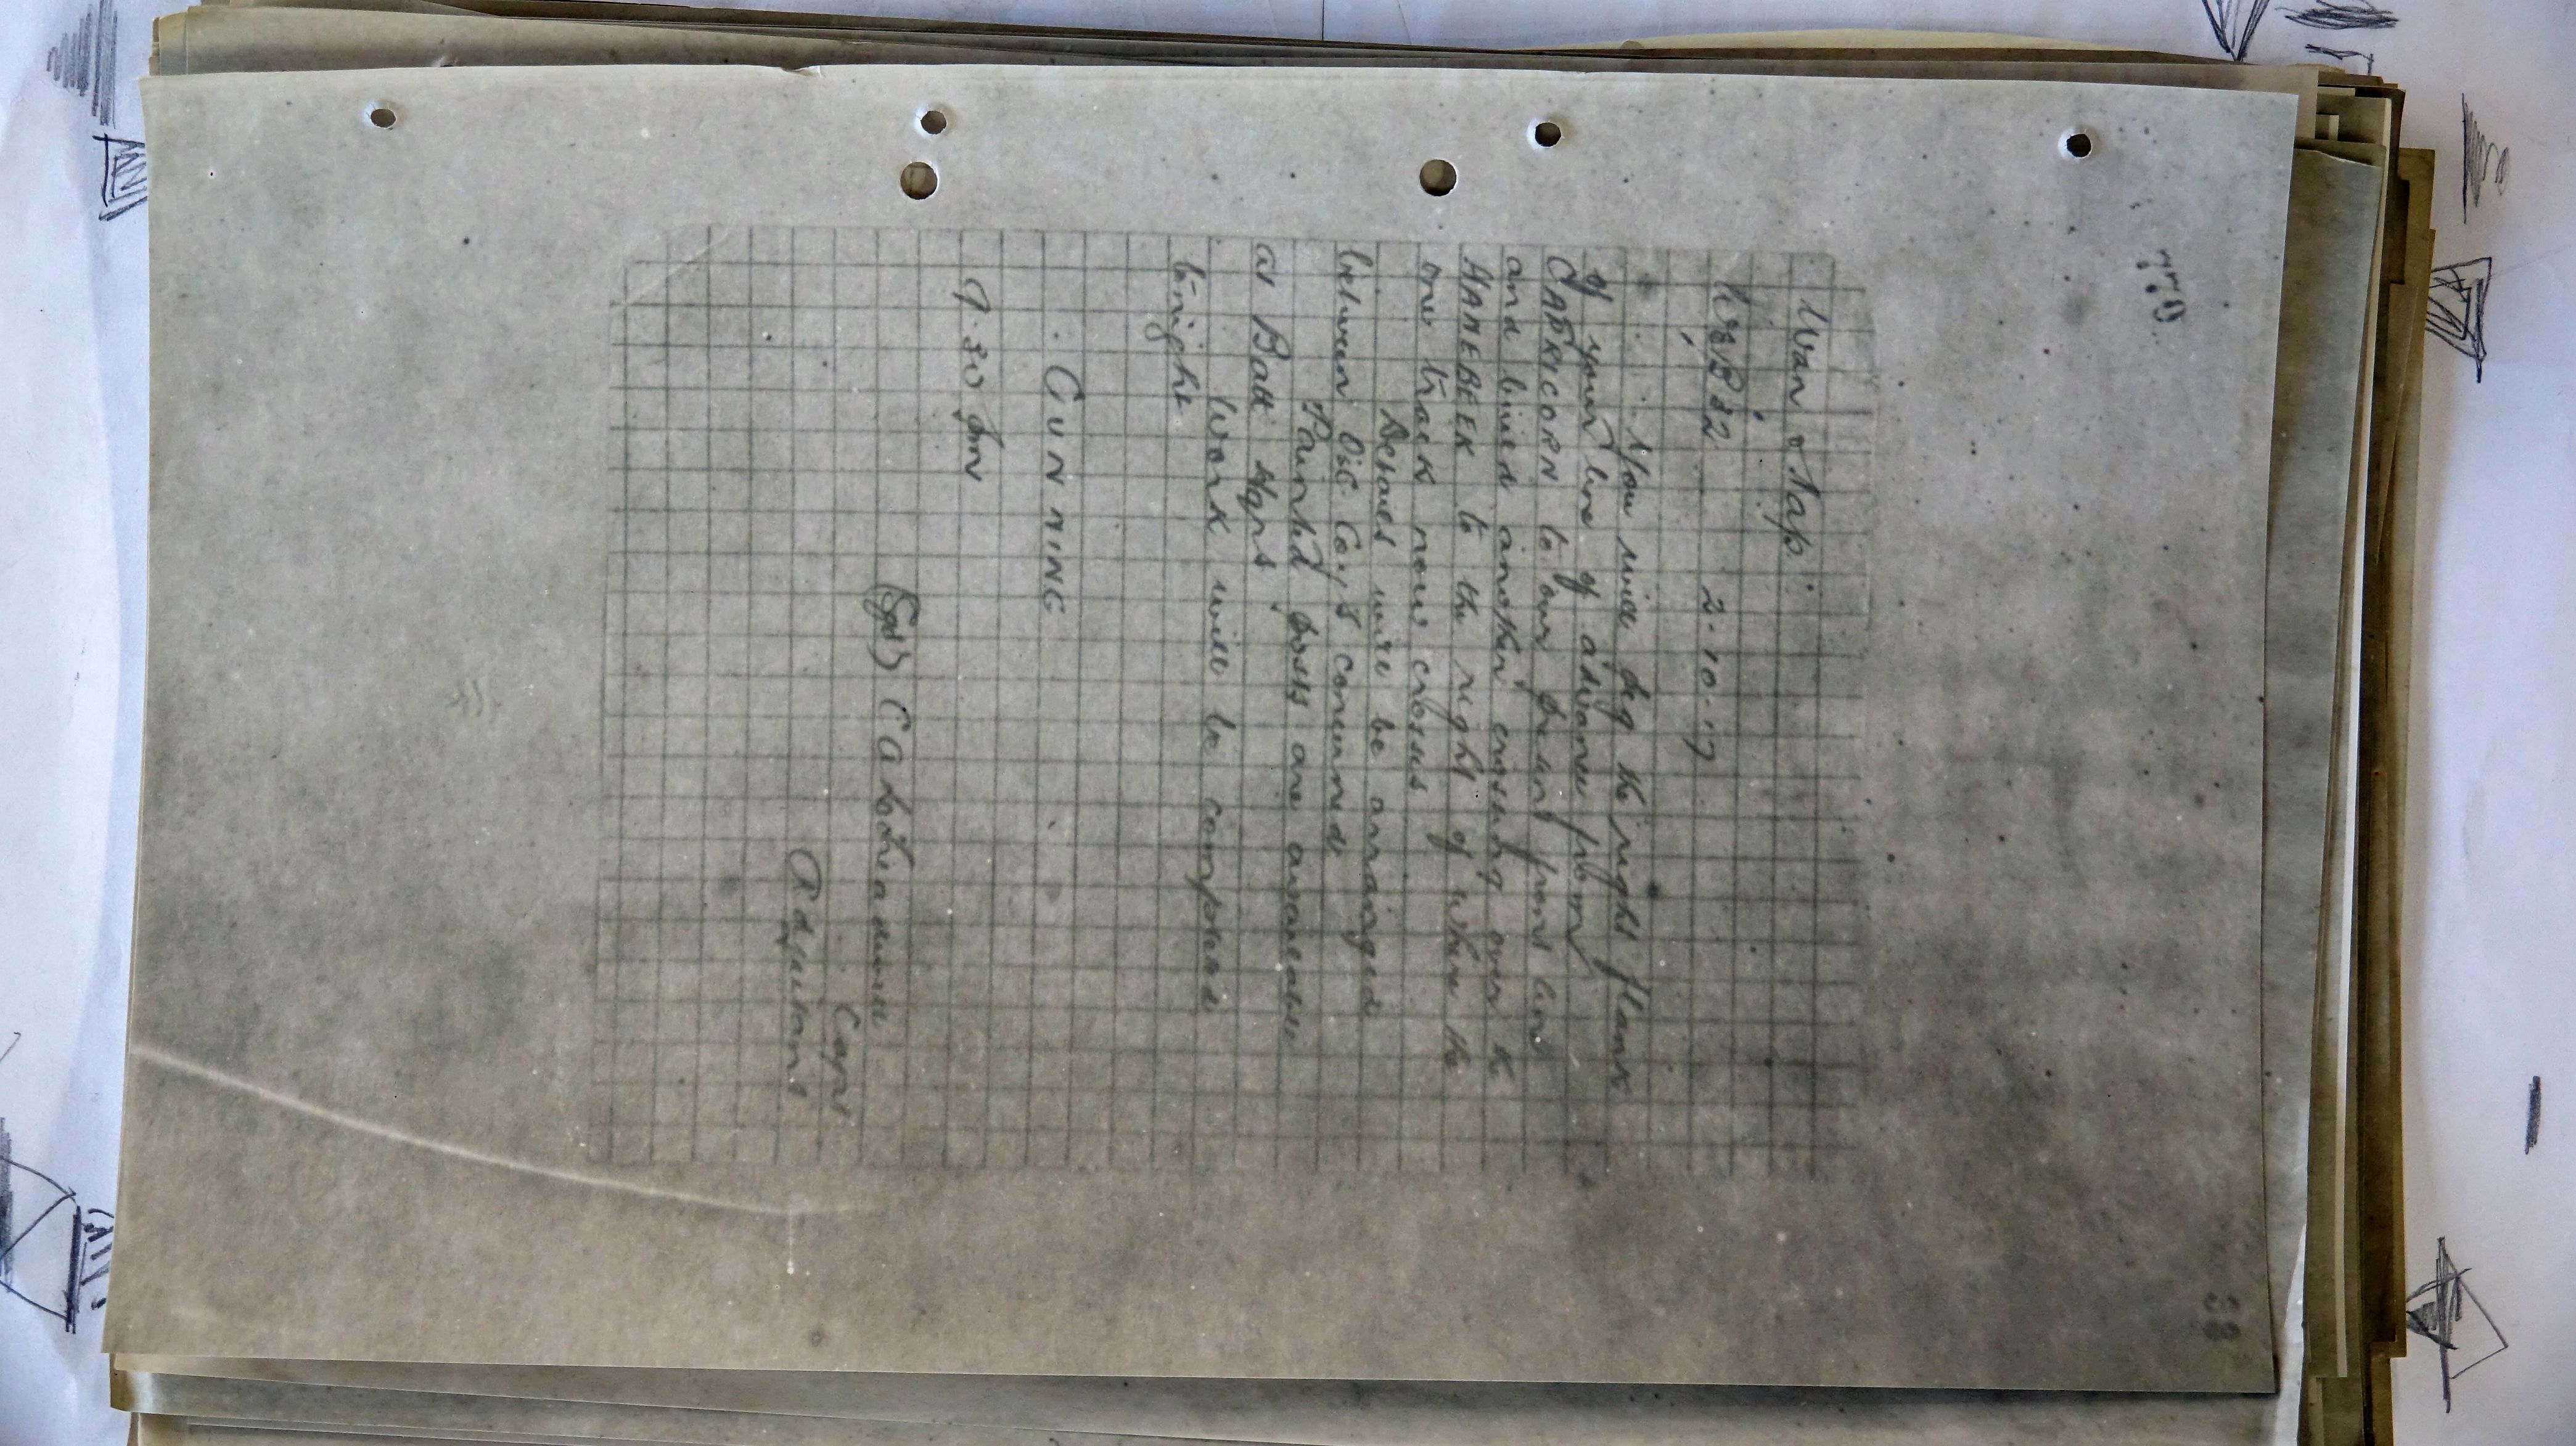 770
38
Wan & Tap.
2.10.17
You will dig the right flank
of your line of advance from
CAPRICORN to our front line
and lined another crossing over the
HANEBEEK to the right of where the
one track now crosses
Details will be arranged
between O i/c Coy's concerned
Painted posts are available
at Batt Hqrs
Work will be completed
tonight
GUNNING
9.30 pm
(Sgd)
Capt
Adjutant